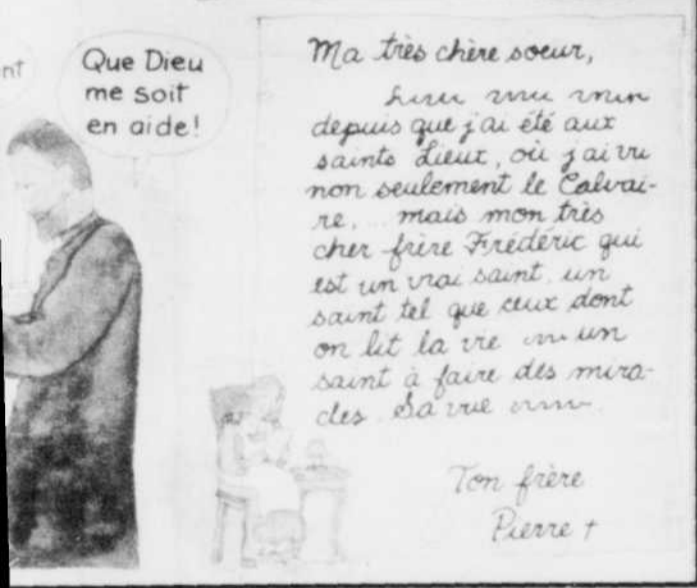 nt
Que Dieu
me soit
en aide!
Ma très chère soeur,
depuis que j'ai été aux
saints Lieux, où j'ai vu
non seulement le Calvai-
re, mais mon très
cher frère Frédéric qui
est un vrai saint, un
saint tel que ceux dont
on lit la vie un
saint à faire des mira-
cles. Sa vue
Ton frère
Pierre +